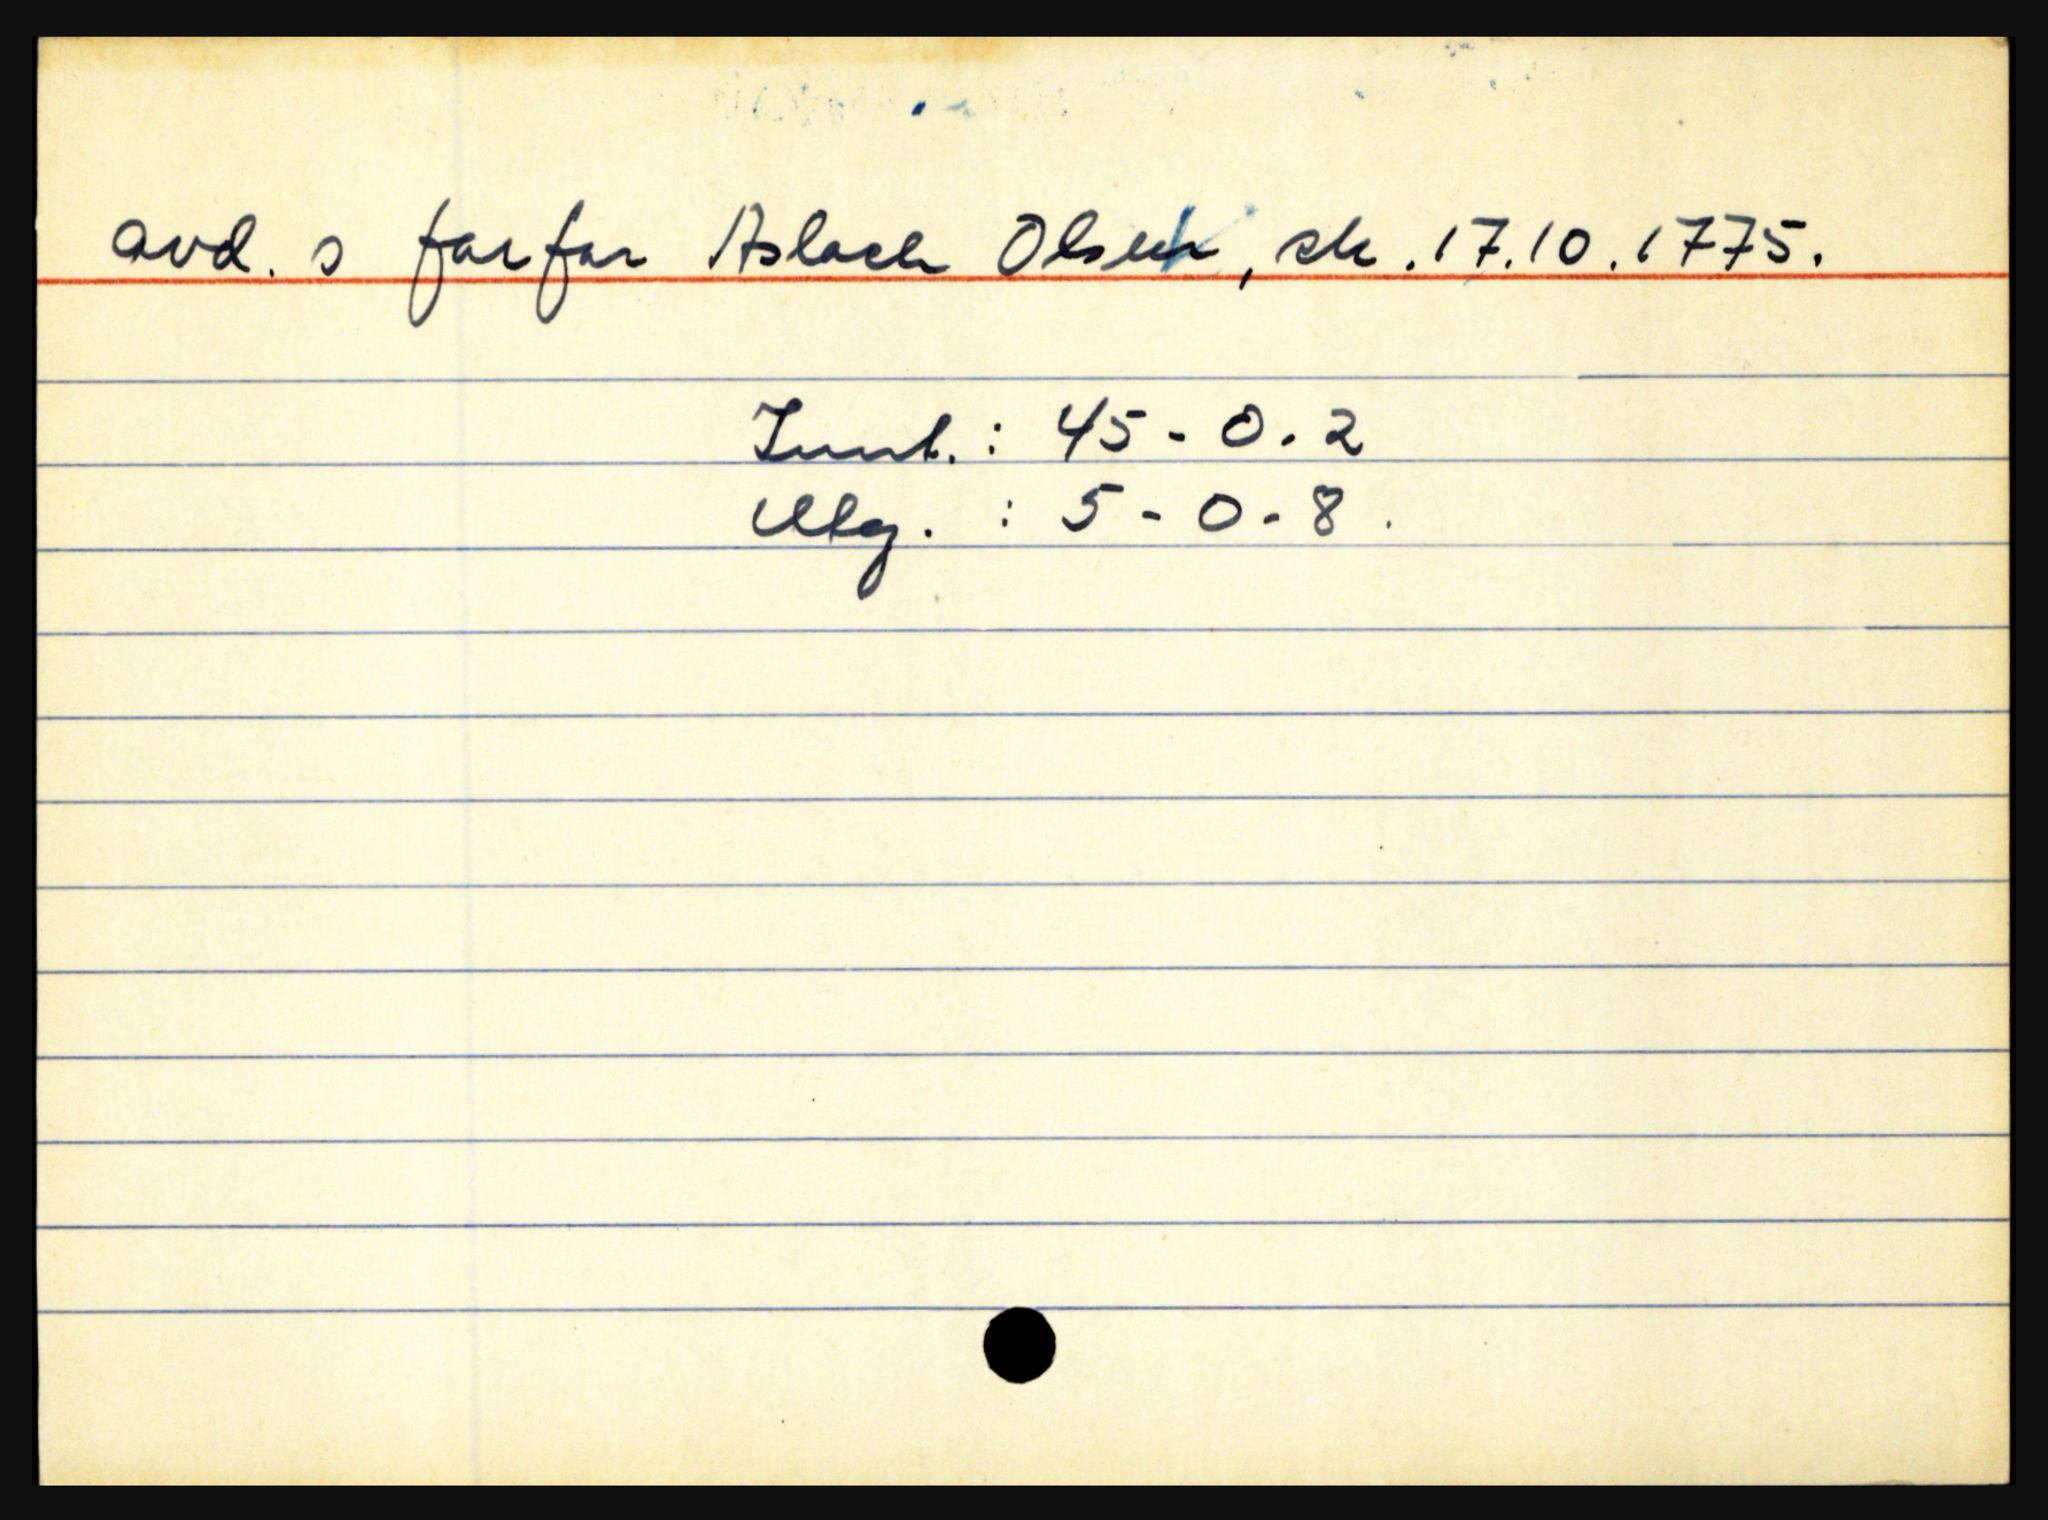 avd. s farfar Aslach Olsen, sk. 17.10.1775.
Innt. : 45 - 0 - 2
Utg. : 5 - 0 - 8.